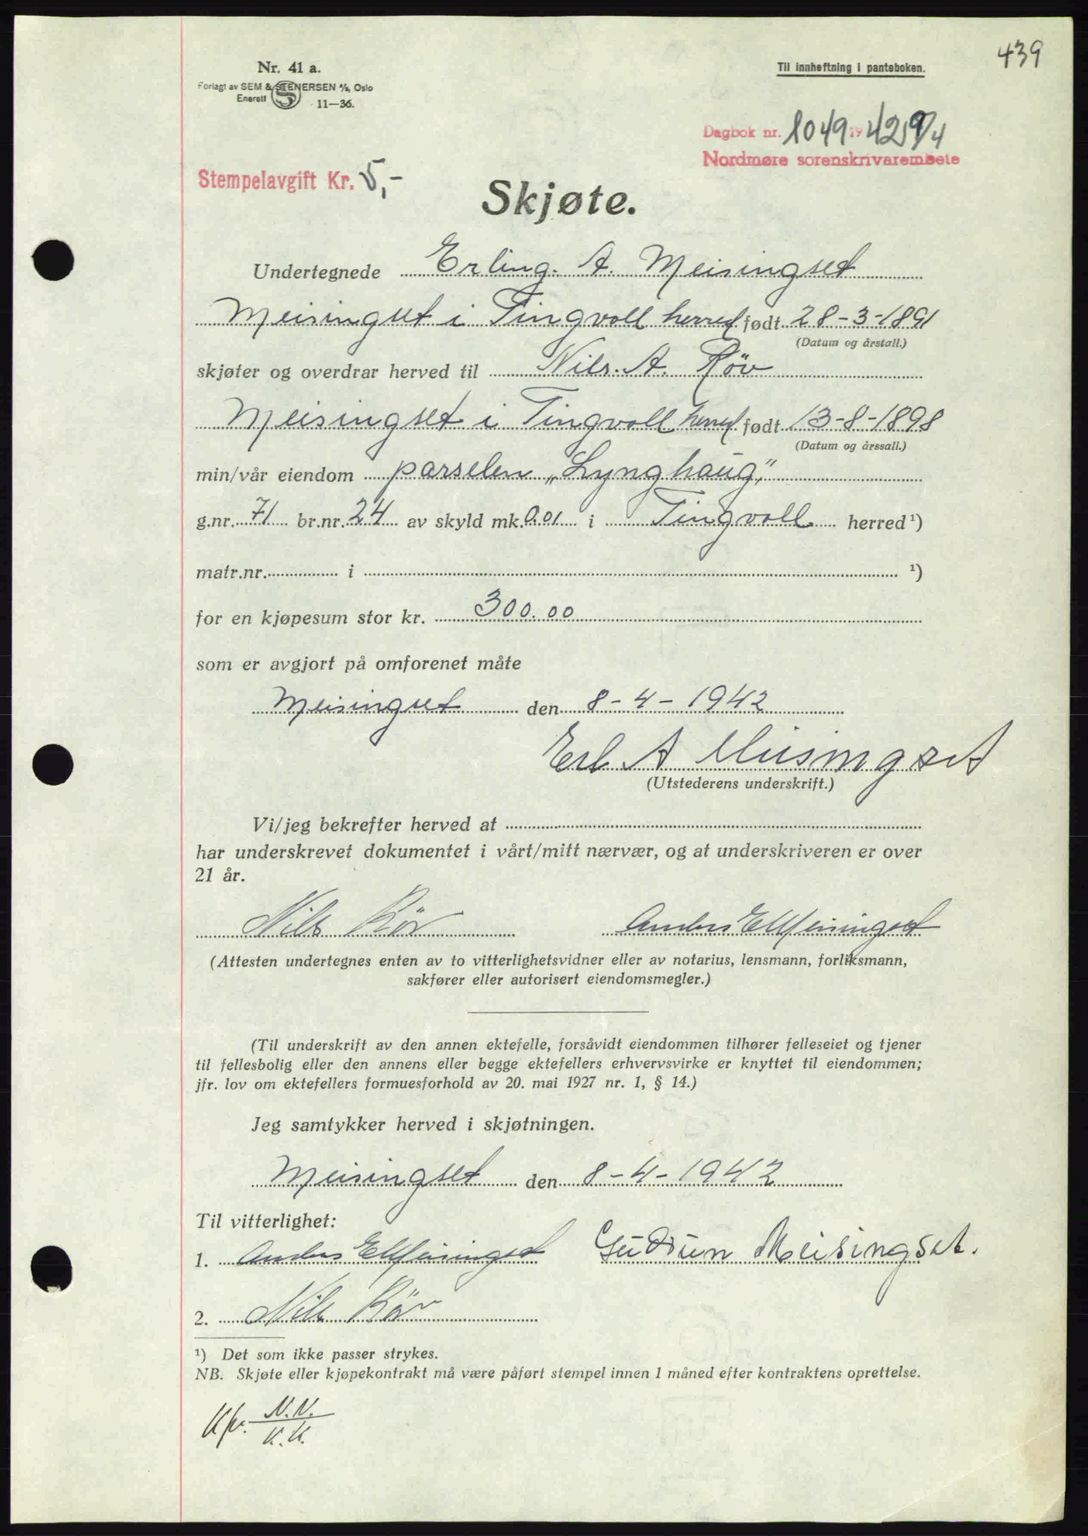 439
Nr. 41 a.
Til innheftning i panteboken.
Forlagt av SEM & STENERSEN A/S, Oslo
Enerett S 11—36.
Dagbok nr. 1049 1942 9/4
Nordmøre sorenskrivarembete
Stempelavgift Kr. 5,-
Skjøte.
Undertegnede Erling. A. Meisingset
Meisingset i Tingvoll herred født 28-3-1891
(Datum og årstall.)
skjøter og overdrar herved til Nils. A. Röv
Meisingset i Tingvoll herred født 13-8-1898
(Datum og årssall.)
min/vår eiendom parselen „Lynghaug„
g.nr. 71 br.nr. 24 av skyld mk. 0.01 i Tingvoll herred ¹)
matr.nr. i ¹)
for en kjøpesum stor kr. 300.00
som er avgjort på omforenet måte
Meisingset den 8-4-1942
Erl. A Meisingset
(Utstederens underskrift.)
Vi/jeg bekrefter herved at
har underskrevet dokumentet i vårt/mitt nærvær, og at underskriveren er over
21 år.
Nils Röv Anders E Meisingset
(Attesten undertegnes enten av to vitterlighetsvidner eller av notarius, lensmann, forliksmann,
sakfører eller autorisert eiendomsmegler.)
(Til underskrift av den annen ektefelle, forsåvidt eiendommen tilhører felleseiet og tjener
til fellesbolig eller den annens eller begge ektefellers erhvervsvirke er knyttet til eiendommen;
jfr. lov om ektefellers formuesforhold av 20. mai 1927 nr. 1, § 14.)
Jeg samtykker herved i skjøtningen.
Meisingset den 8-4-1942
Til vitterlighet:
1. Anders E Meisingset Gudrun Meisingset.
2. Nils Röv
¹) Det som ikke passer strykes.
NB. Skjøte eller kjøpekontrakt må være påført stempel innen 1 måned efter kontraktens oprettelse.
N.N.
K.K.